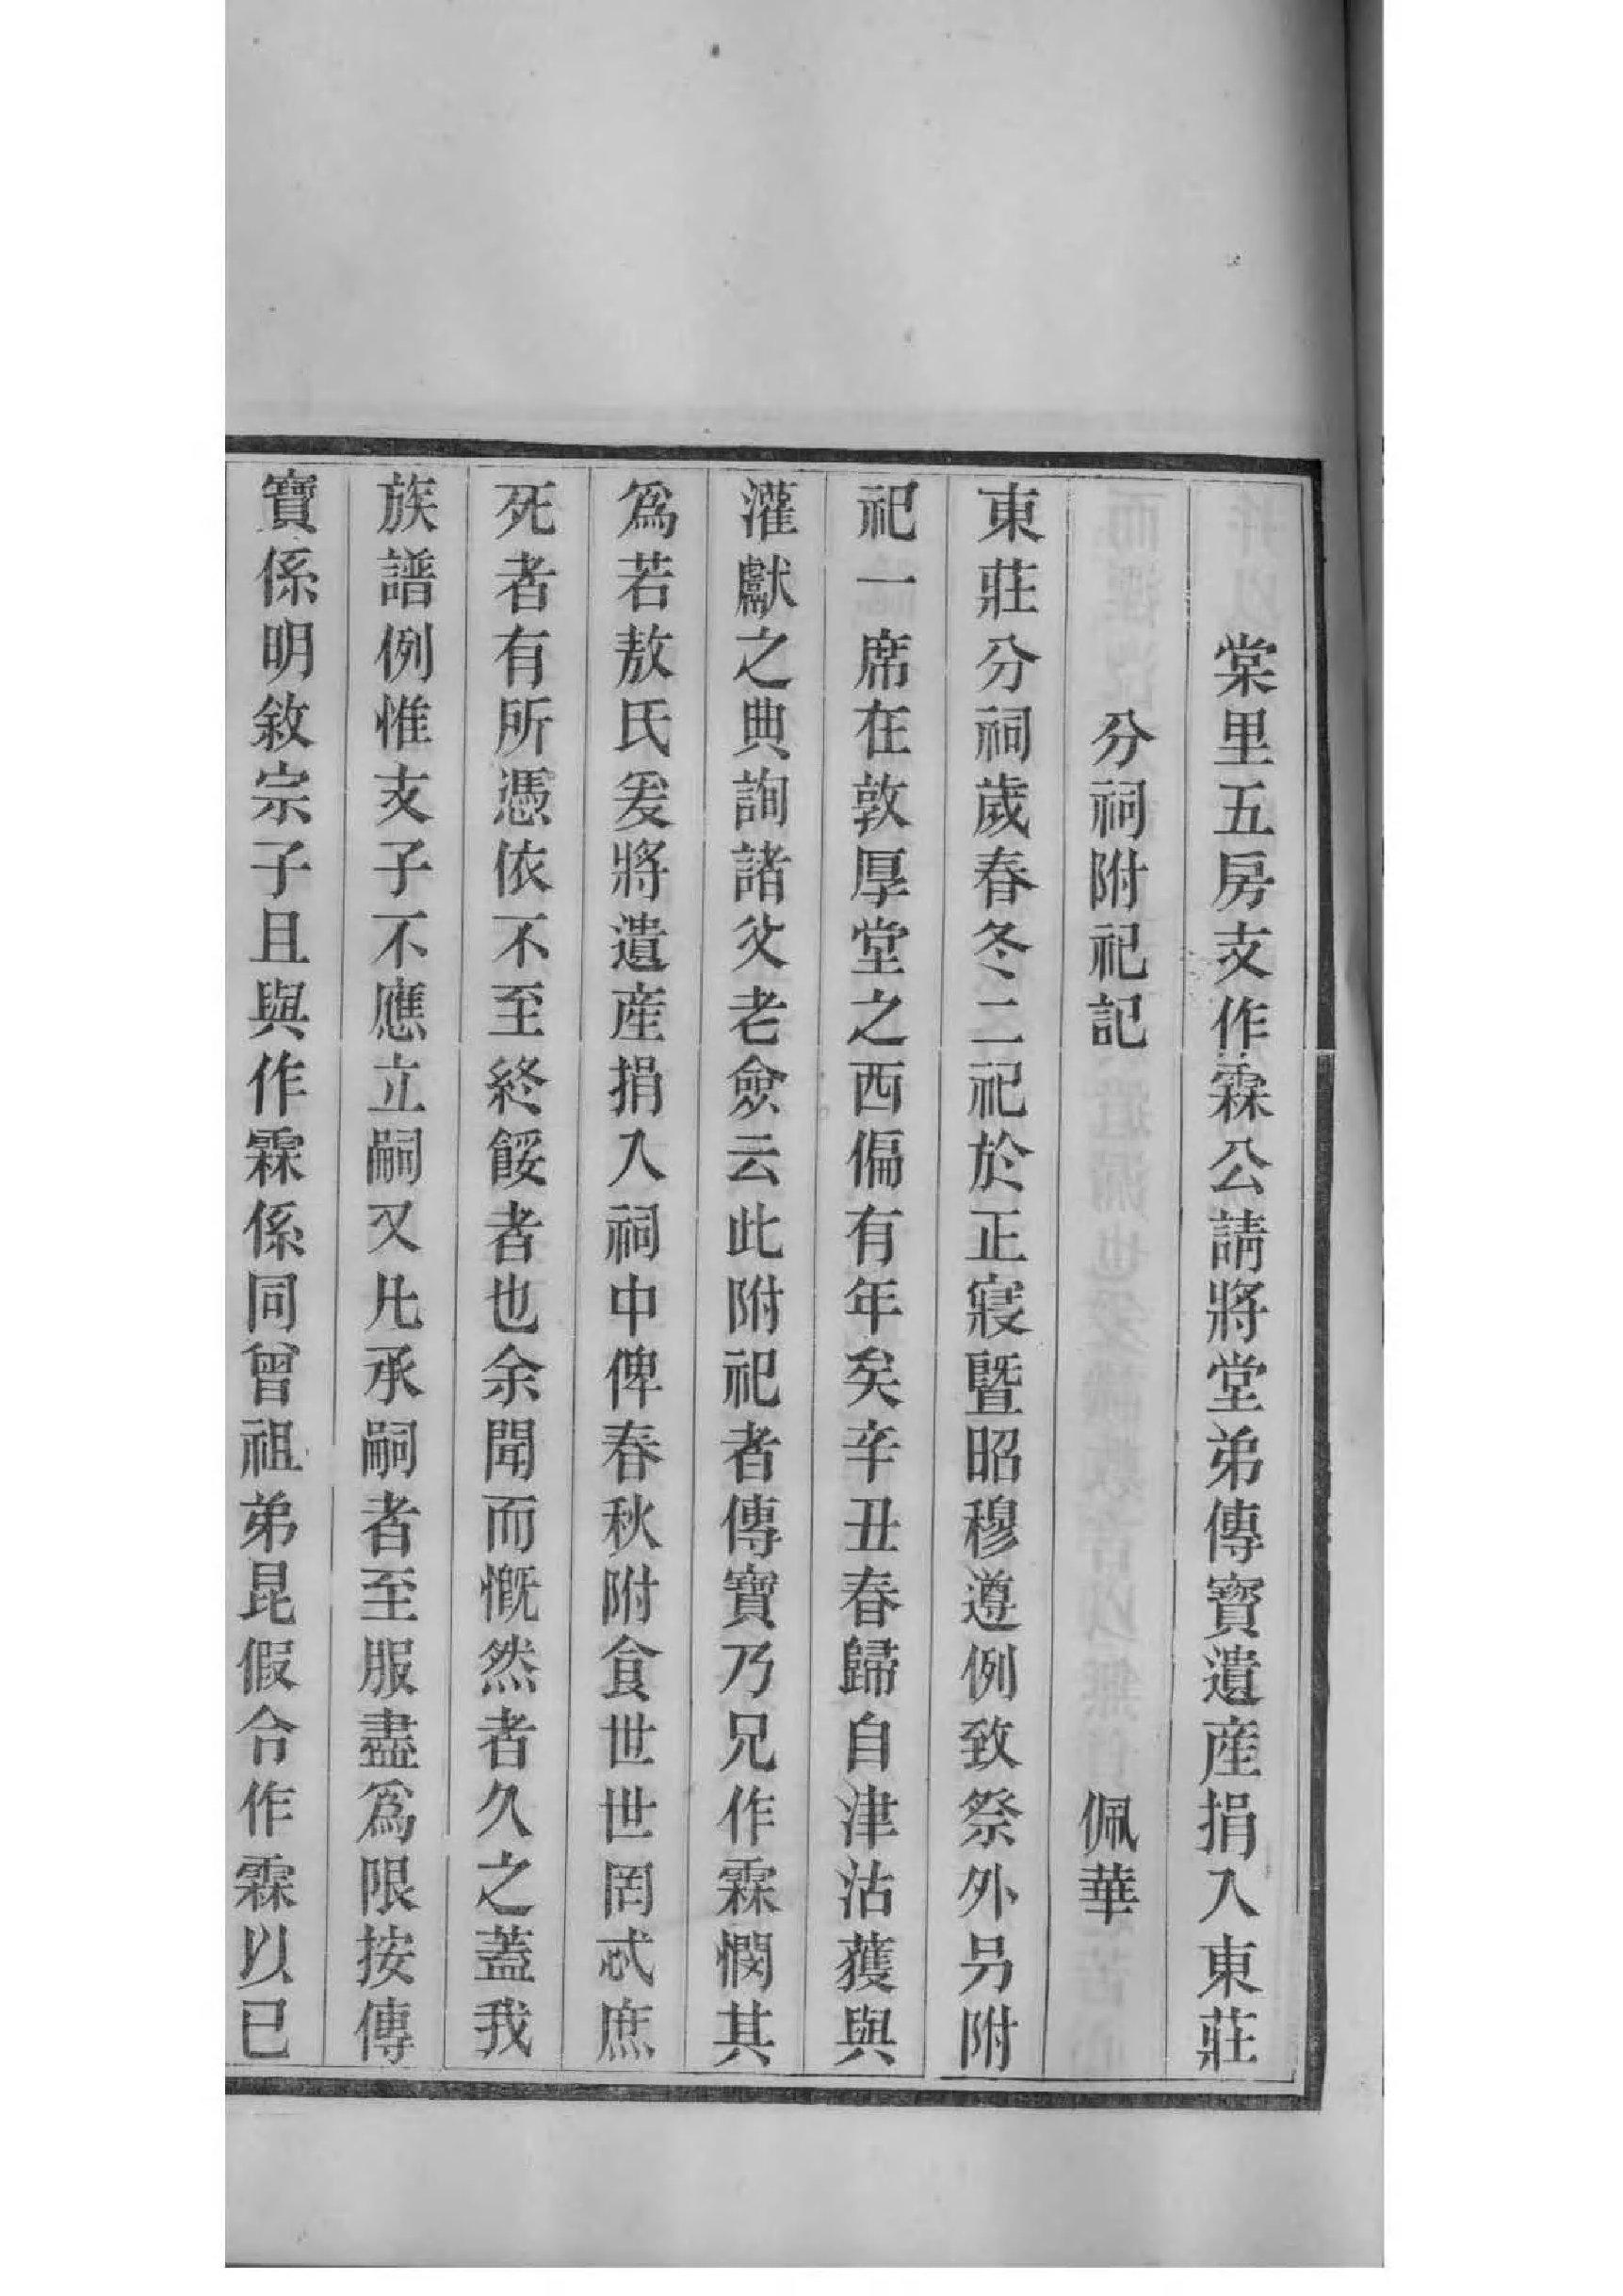 棠里五房支作霖公請將堂弟傳寶遺産捐入東莊
分祠附祀記　佩華
東莊分祠歲春冬二祀於正寢暨昭穆遵例致祭外另附
祀一席在敦厚堂之西偏有年矣辛丑春歸自津沽獲與
灌獻之典詢諸父老僉云此附祀者傳寶乃兄作霖憫其
爲若敖氏爰將遺産捐入祠中俾春秋附食世世罔忒庶
死者有所憑依不至終餒者也余聞而慨然者久之蓋我
族譜例惟支子不應立嗣又凡承嗣者至服盡爲限按傳
寶係明敘宗子且與作霖係同曾祖弟昆假令作霖以已